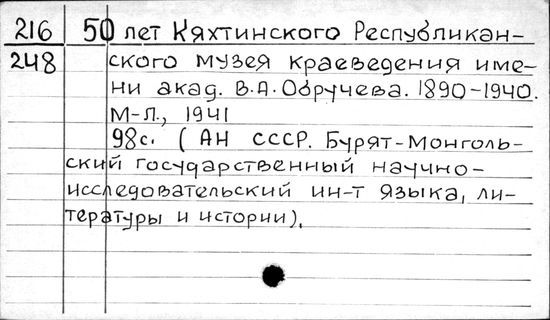 216 50 лет Кяхтинского Республикан-
248 ского музея краеведения име-
ни акад. В.А. Обручева. 1890-1940.
М-Л., 1941
98с. (АН СССР. Бурят-Монголь-
ский государственный научно-
исследовательский ин-т языка, ли-
тературы и истории).